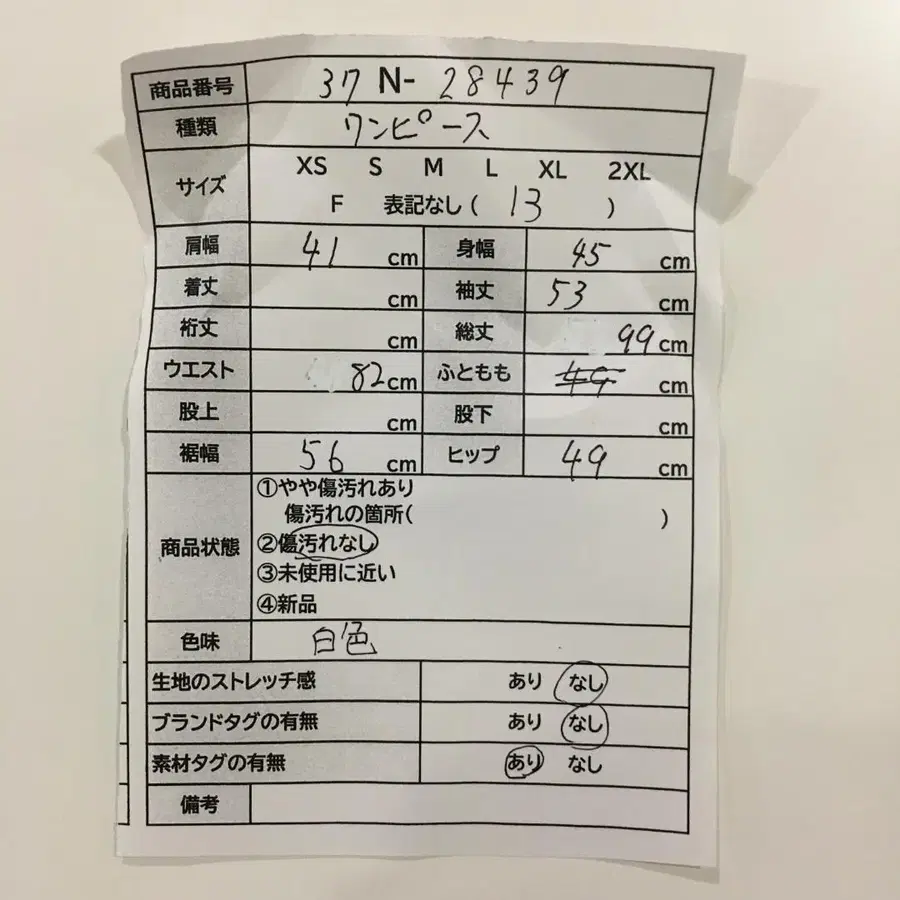 商品番号 37 N- 28439
種類 ワンピース
サイズ XS S M L XL 2XL
F 表記なし( 13 )
肩幅 41 cm 身幅 45 cm
着丈 cm 袖丈 53 cm
裄丈 cm 総丈 99 cm
ウエスト 82 cm ふともも 49 cm
股上 cm 股下 cm
裾幅 56 cm ヒップ 49 cm
商品状態 ①やや傷汚れあり
傷汚れの箇所( )
②傷汚れなし
③未使用に近い
④新品
色味 白色
生地のストレッチ感 あり なし
ブランドタグの有無 あり なし
素材タグの有無 あり なし
備考